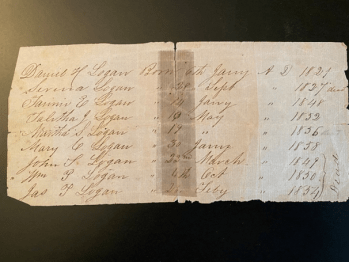 Daniel H Logan Born 6th Jany A D 1821
Serena Logan " 28 " Sept " 1827
Fannie E Logan " 18 " Jany " 1848
Talitha J Logan " 19 May " 1852
Martha S Logan " 17 " " 1856
Mary C Logan " 30 Jany " 1858
John S Logan " 22nd March " 1849
" Wm T Logan " 4th Oct " 1850
Jas F Logan " Feby " 1854
Dead